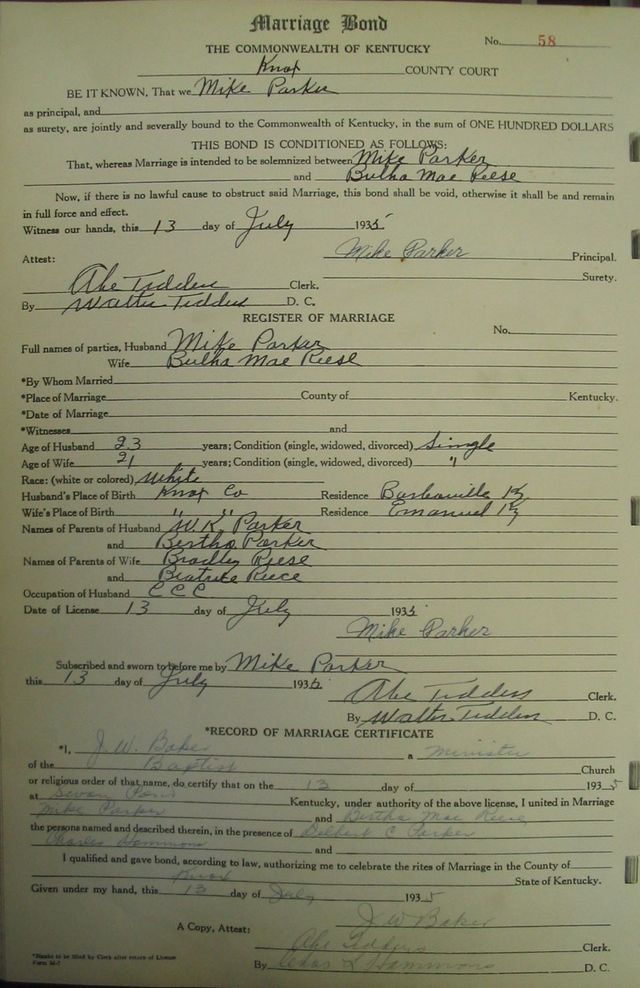 Marriage Bond
No. 58
THE COMMONWEALTH OF KENTUCKY
Knox COUNTY COURT
BE IT KNOWN, That we Mike Parker
as principal, and
as surety, are jointly and severally bound to the Commonwealth of Kentucky, in the sum of ONE HUNDRED DOLLARS
THIS BOND IS CONDITIONED AS FOLLOWS:
That, whereas Marriage is intended to be solemnized between Mike Parker
and Bulha Mae Reese
Now, if there is no lawful cause to obstruct said Marriage, this bond shall be void, otherwise it shall be and remain
in full force and effect.
Witness our hands, this 13 day of July 1935
Mike Parker Principal.
Attest:
Surety.
Abe Tidden Clerk.
By Walter Tidden D. C.
REGISTER OF MARRIAGE
No.
Full names of parties, Husband Mike Parker
Wife Bulha Mae Reese
*By Whom Married
*Place of Marriage County of Kentucky.
*Date of Marriage
*Witnesses and
Age of Husband 23 years; Condition (single, widowed, divorced) Single
Age of Wife 21 years; Condition (single, widowed, divorced) "
Race: (white or colored) White
Husband's Place of Birth Knox Co Residence Barbourville Ky
Wife's Place of Birth " " Residence Emanuel Ky
Names of Parents of Husband W. K. Parker
and Bertha Parker
Names of Parents of Wife Bradley Reese
and Beatrice Reece
Occupation of Husband C C C
Date of License 13 day of July 1935
Mike Parker
Subscribed and sworn to before me by Mike Parker
this 13 day of July 1935
Abe Tidden Clerk.
By Walter Tidden D. C.
*RECORD OF MARRIAGE CERTIFICATE
*I, J. W. Baker a Minister
of the Baptist Church
or religious order of that name, do certify that on the 13 day of 1935
at Swan Pond Kentucky, under authority of the above license, I united in Marriage
Mike Parker and Bertha Mae Reese
the persons named and described therein, in the presence of Delbert C Parker
Charles Hammons and
I qualified and gave bond, according to law, authorizing me to celebrate the rites of Marriage in the County of
Knox State of Kentucky.
Given under my hand, this 13 day of July 1935
J. W Baker
A Copy, Attest:
Abe Tidden Clerk.
*Blanks to be filled by Clerk after return of License
By Chas L Hammons D. C.